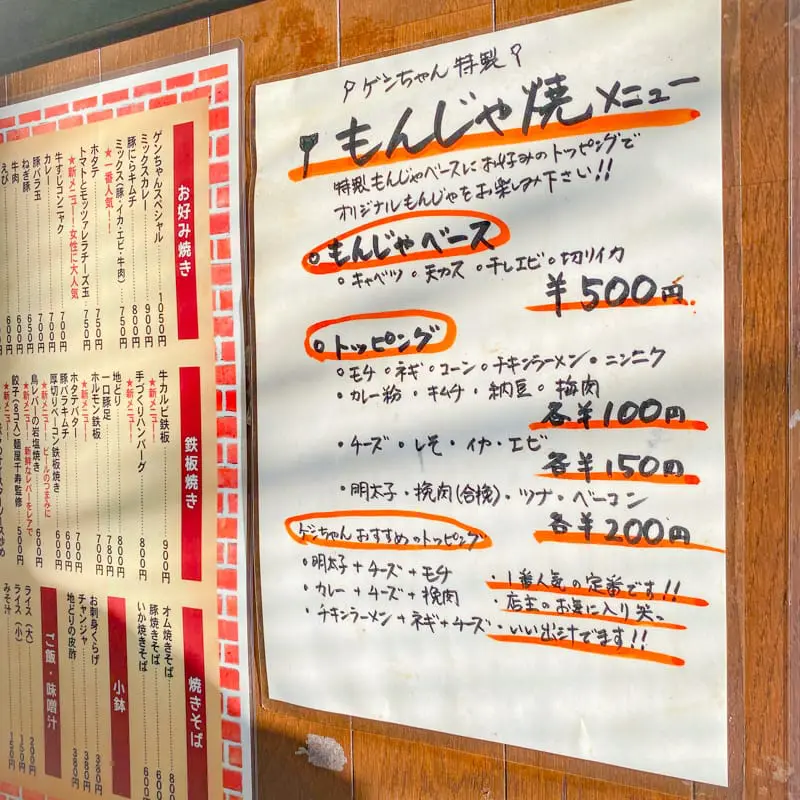 ゲンちゃん特製
もんじゃ焼メニュー
特製もんじゃベースにお好みのトッピングで
オリジナルもんじゃをお楽しみ下さい!!
もんじゃベース
・キャベツ ・天カス ・干しエビ ・切りイカ
¥500円
トッピング
・モチ ・ネギ ・コーン ・チキンラーメン ・ニンニク
・カレー粉 ・キムチ ・納豆 ・梅肉
各¥100円
・チーズ ・しそ ・イカ ・エビ
各¥150円
・明太子 ・挽肉(合挽) ・ツナ ・ベーコン
各¥200円
ゲンちゃんおすすめのトッピング
・明太子+チーズ+モチ ・1番人気の定番です!!
・カレー+チーズ+挽肉 店主のお気に入り笑〜
・チキンラーメン+ネギ+チーズ ・いい出汁でます!!
お好み焼き
ゲンちゃんスペシャル 1050円
ミックスカレー 900円
豚にらキムチ 800円
ミックス(豚・イカ・エビ・牛肉) 750円
★一番人気!!
ホタテ 750円
トマトとモッツァレラチーズ玉 750円
★新メニュー!!女性に大人気
牛すじコンニャク 700円
カレー 700円
豚バラ玉 700円
ねぎ豚 650円
牛肉 600円
えび 600円
鉄板焼き
牛カルビ鉄板 900円
★新メニュー!
手づくりハンバーグ 800円
★新メニュー!
地どり 800円
一口豚足 700円
ホルモン鉄板 700円
★新メニュー!
ホタテバター 700円
豚バラキムチ 600円
厚切りベーコン鉄板焼き 600円
★新メニュー!ビールのつまみに
鳥レバーの岩塩焼き 600円
★新メニュー!新鮮なレバーをレアで
餃子(8コ入)麺屋千寿監修 500円
★新メニュー!
焼きそば
オム焼きそば 800
豚焼きそば 600
いか焼きそば 600
小鉢
お刺身くらげ 380円
チャンジャ 380円
地どりの皮酢 380円
ご飯・味噌汁
ライス(大) 200円
ライス(小) 150円
みそ汁 150円